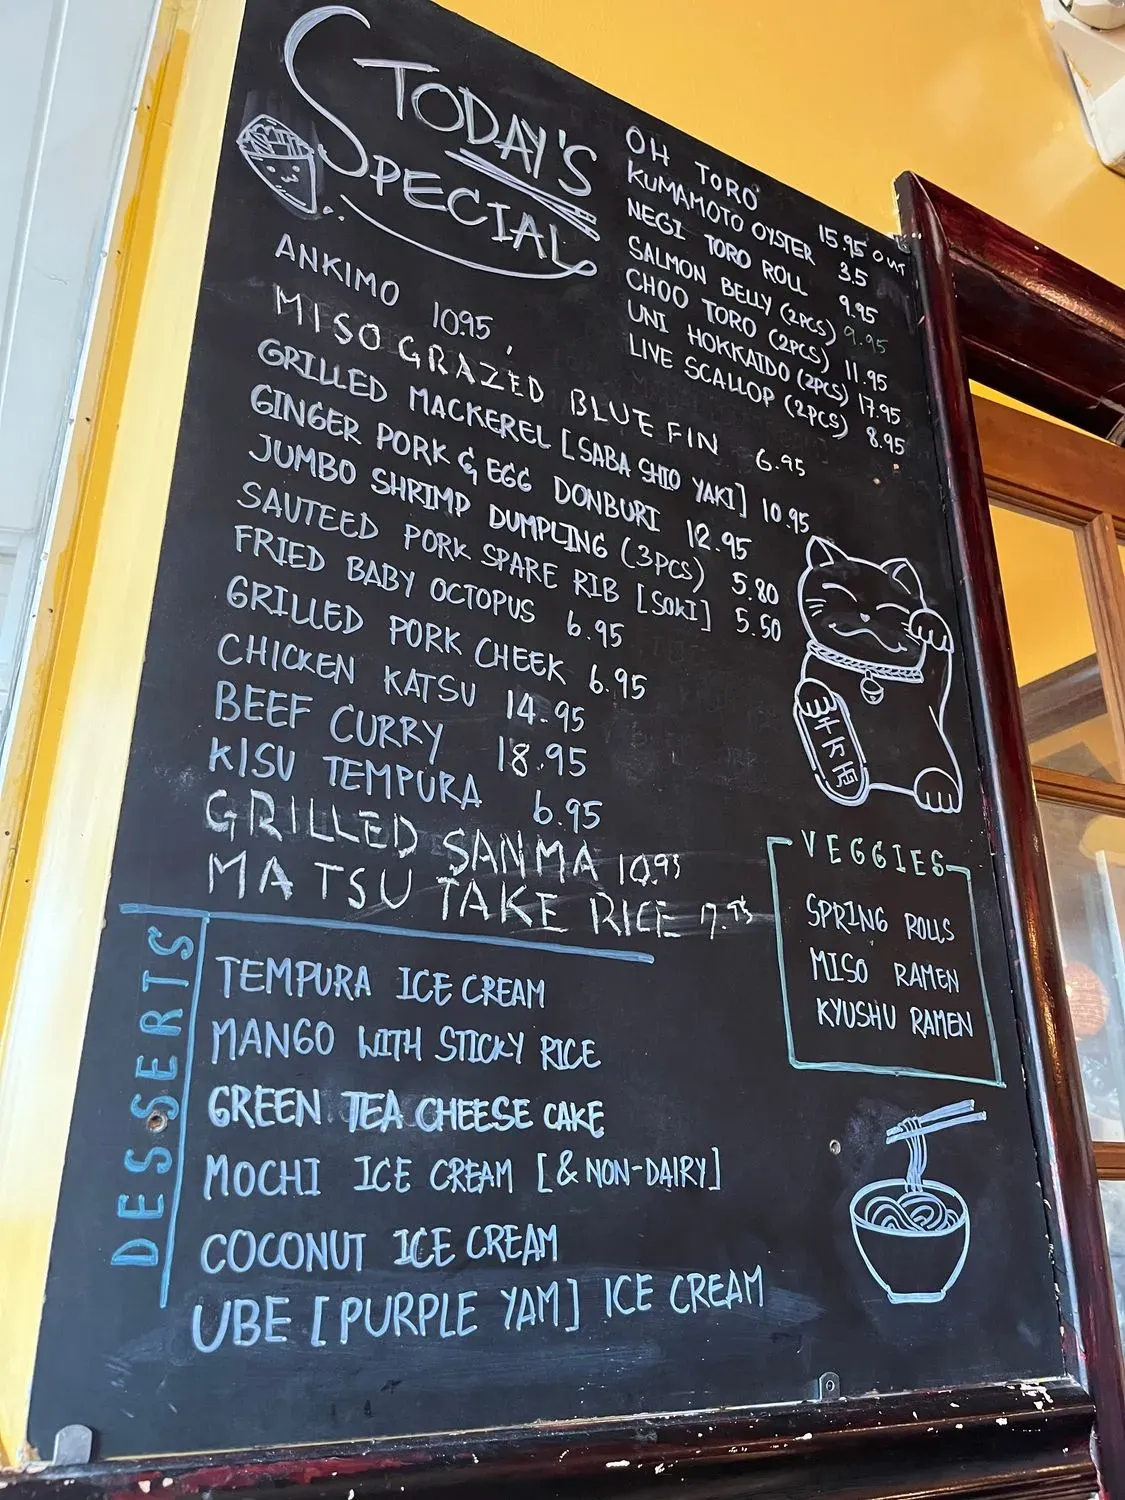 TODAY'S
SPECIAL
ANKIMO 10.95,
MISO GRAZED BLUE FIN 6.95
GRILLED MACKEREL [SABA SHIO YAKI] 10.95
GINGER PORK & EGG DONBURI 12.95
JUMBO SHRIMP DUMPLING (3PCS) 5.80
SAUTEED PORK SPARE RIB [SOKI] 5.50
FRIED BABY OCTOPUS 6.95
GRILLED PORK CHEEK 6.95
CHICKEN KATSU 14.95
BEEF CURRY 18.95
KISU TEMPURA 6.95
GRILLED SANMA 10.95
MATSU TAKE RICE 7.75
OH TORO 15.95 OUT
KUMAMOTO OYSTER 3.5
NEGI TORO ROLL 9.95
SALMON BELLY (2PCS) 9.95
CHOO TORO (2PCS) 11.95
UNI HOKKAIDO (2PCS) 17.95
LIVE SCALLOP (2PCS) 8.95
千万両
VEGGIES
SPRING ROLLS
MISO RAMEN
KYUSHU RAMEN
DESSERTS
TEMPURA ICE CREAM
MANGO WITH STICKY RICE
GREEN TEA CHEESE CAKE
MOCHI ICE CREAM [& NON-DAIRY]
COCONUT ICE CREAM
UBE [PURPLE YAM] ICE CREAM